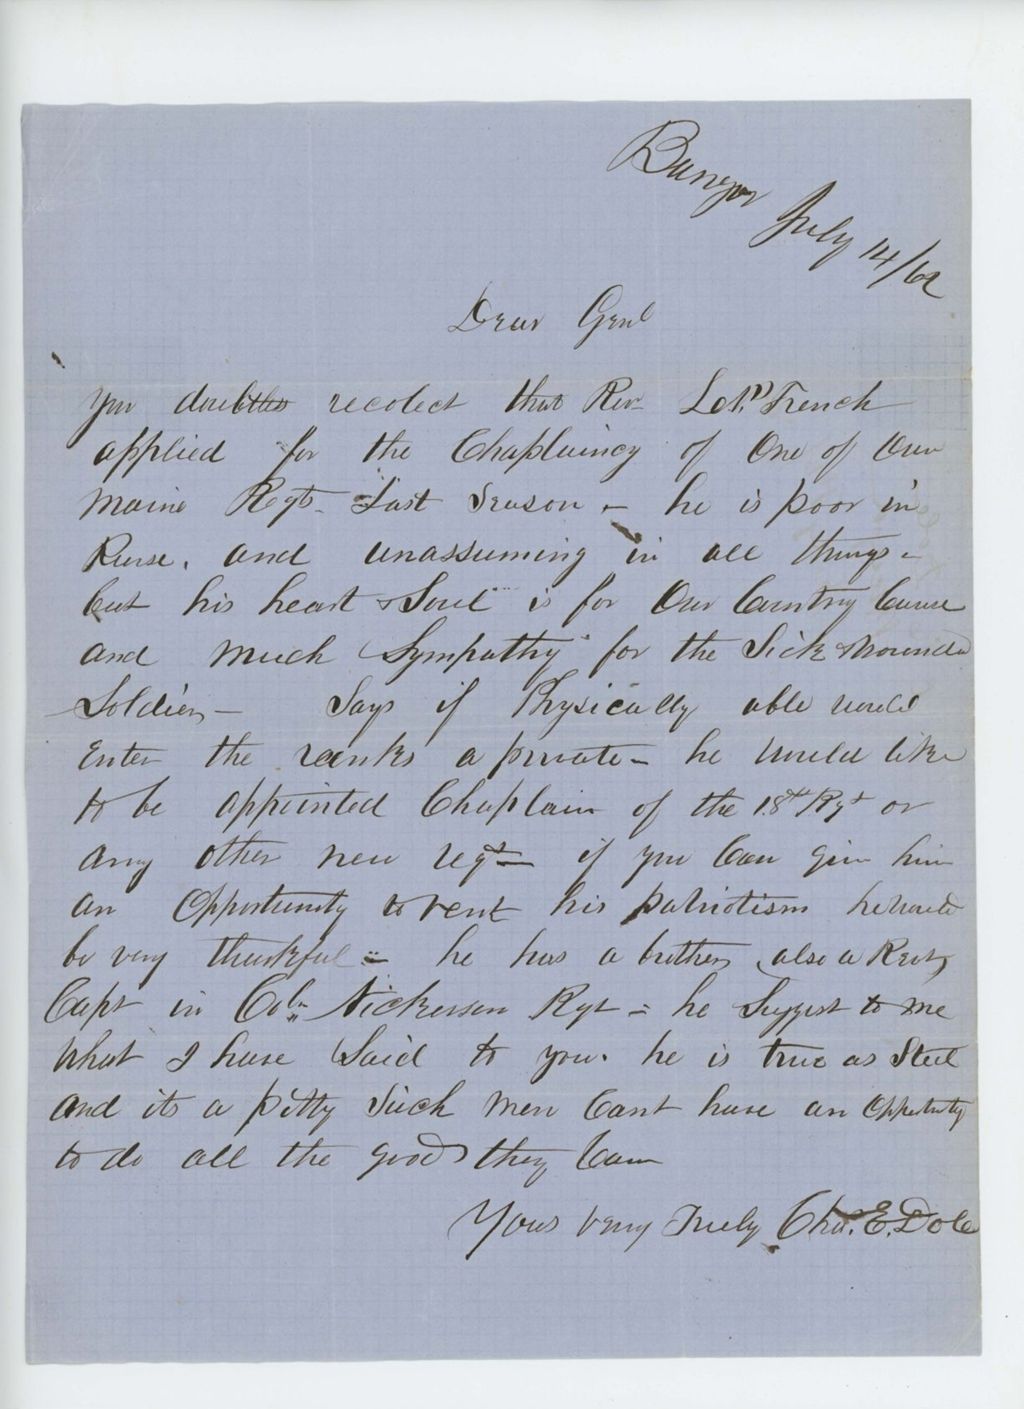 Bangor July 14/62
Dear Genl
You doubtless recolect that Rev French
applied for the Chaplaincy of One of Our
Maine Regts Last Season - he is poor in
Purse, and unassuming in all things -
but his heart & Soul is for Our Country Cause
and much Sympathy for the Sick & wounded
Soldiers - Says if Physically able would
Enter the ranks a private - he would like
to be appointed Chaplain of the 18th Rgt or
any other new regt - if you Can give him
an Opportunity to vent his patriotism he would
be very thankful - he has a brother, also a Revd,
Capt in Col. Nickerson Rgt - he Suggest to me
What I have Said to you. he is true as Steel
and its a pitty Such Men Cant have an Oppertunity
to do all the good they Can
Yours very Truly Chas. E. Dole